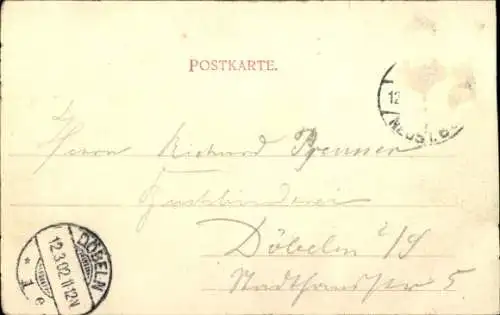 POSTKARTE.
12
NEUST. B
Herrn Richard Brenner
Buchbinderei
Döbeln i/S
Stadthausstr 5
DÖBELN
12.3.02.11-12V
* 1 e